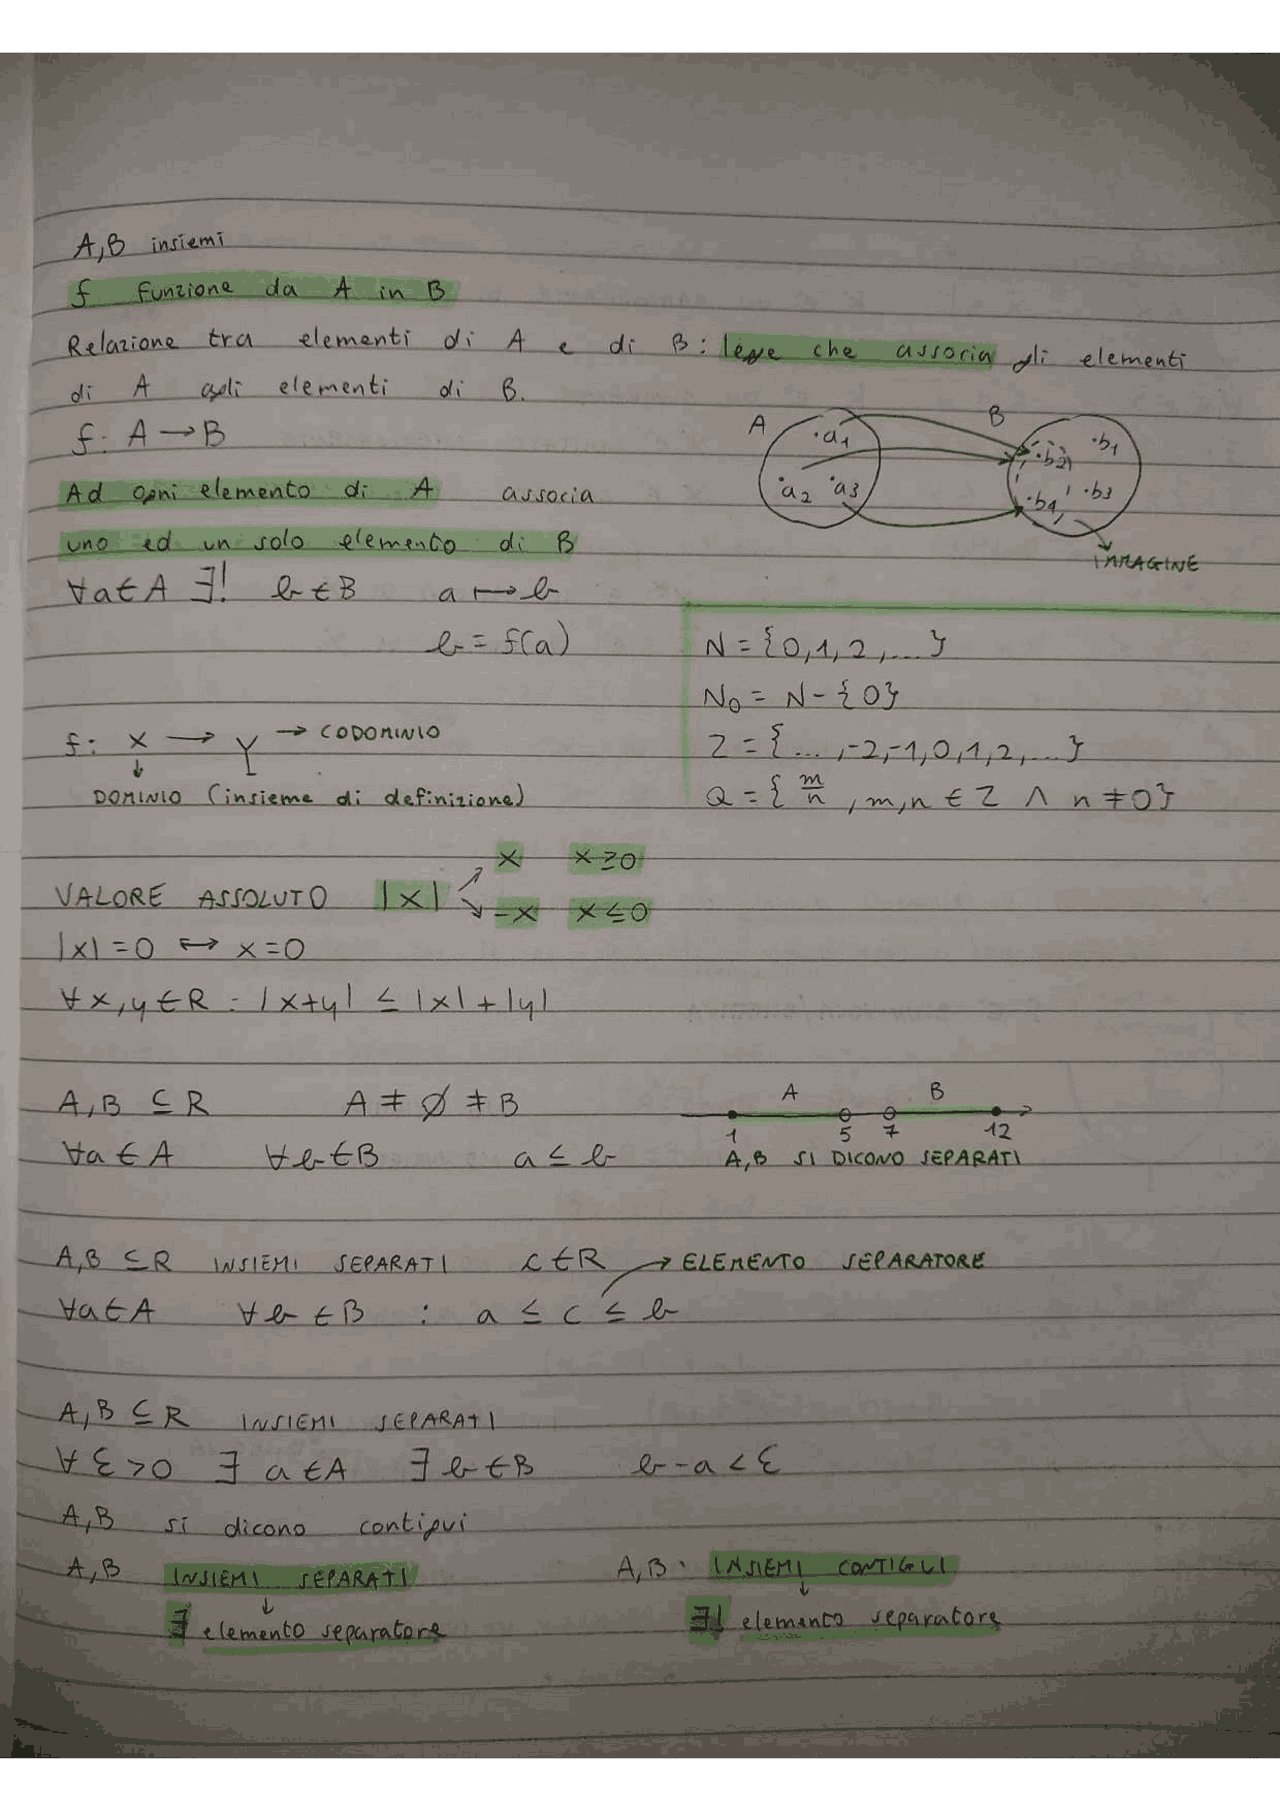 A,B insiemi
f funzione da A in B
Relazione tra elementi di A e di B: legge che associa gli elementi
di A agli elementi di B.
f: A → B
A B
·a1 ·a2 ·a3 ·b2 ·b1 ·b4 ·b3
Ad ogni elemento di A associa
uno ed un solo elemento di B
IMMAGINE
∀a∈A ∃! b∈B a ↦ b
b = f(a)
N = {0,1,2,...}
N0 = N-{0}
f: X → Y → CODOMINIO
Z = {...,-2,-1,0,1,2,...}
↓
DOMINIO (insieme di definizione)
Q = { m/n , m,n ∈ Z ∧ n ≠ 0}
VALORE ASSOLUTO |x| ↗ x x≥0
↘ -x x≤0
|x|=0 ↔ x=0
∀x,y∈R : |x+y| ≤ |x|+|y|
A,B ⊆ R A ≠ ∅ ≠ B
A B
1 5 7 12
∀a∈A ∀b∈B a ≤ b
A,B SI DICONO SEPARATI
A,B ⊆ R INSIEMI SEPARATI c∈R → ELEMENTO SEPARATORE
∀a∈A ∀b∈B : a ≤ c ≤ b
A,B ⊆ R INSIEMI SEPARATI
∀ε>0 ∃ a∈A ∃ b∈B b-a<ε
A,B si dicono contigui
A,B INSIEMI SEPARATI
↓
∃ elemento separatore
A,B. INSIEMI CONTIGUI
↓
∃! elemento separatore